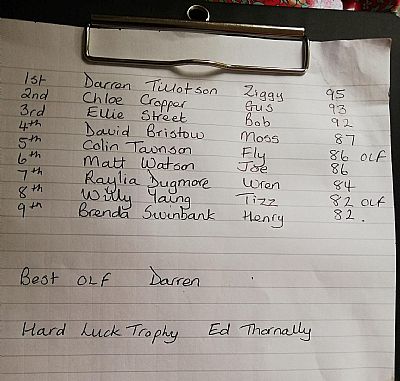 1st Darren Tillotson Ziggy 95
2nd Chloe Cropper Gus 93
3rd Ellie Street Bob 92
4th David Bristow Moss 87
5th Colin Taunson Fly 86 OLF
6th Matt Watson Joe 86
7th Raylia Dugmore Wren 84
8th Willy Young Tizz 82 OLF
9th Brenda Swinbank Henry 82.
Best OLF Darren
Hard Luck Trophy Ed Thornally